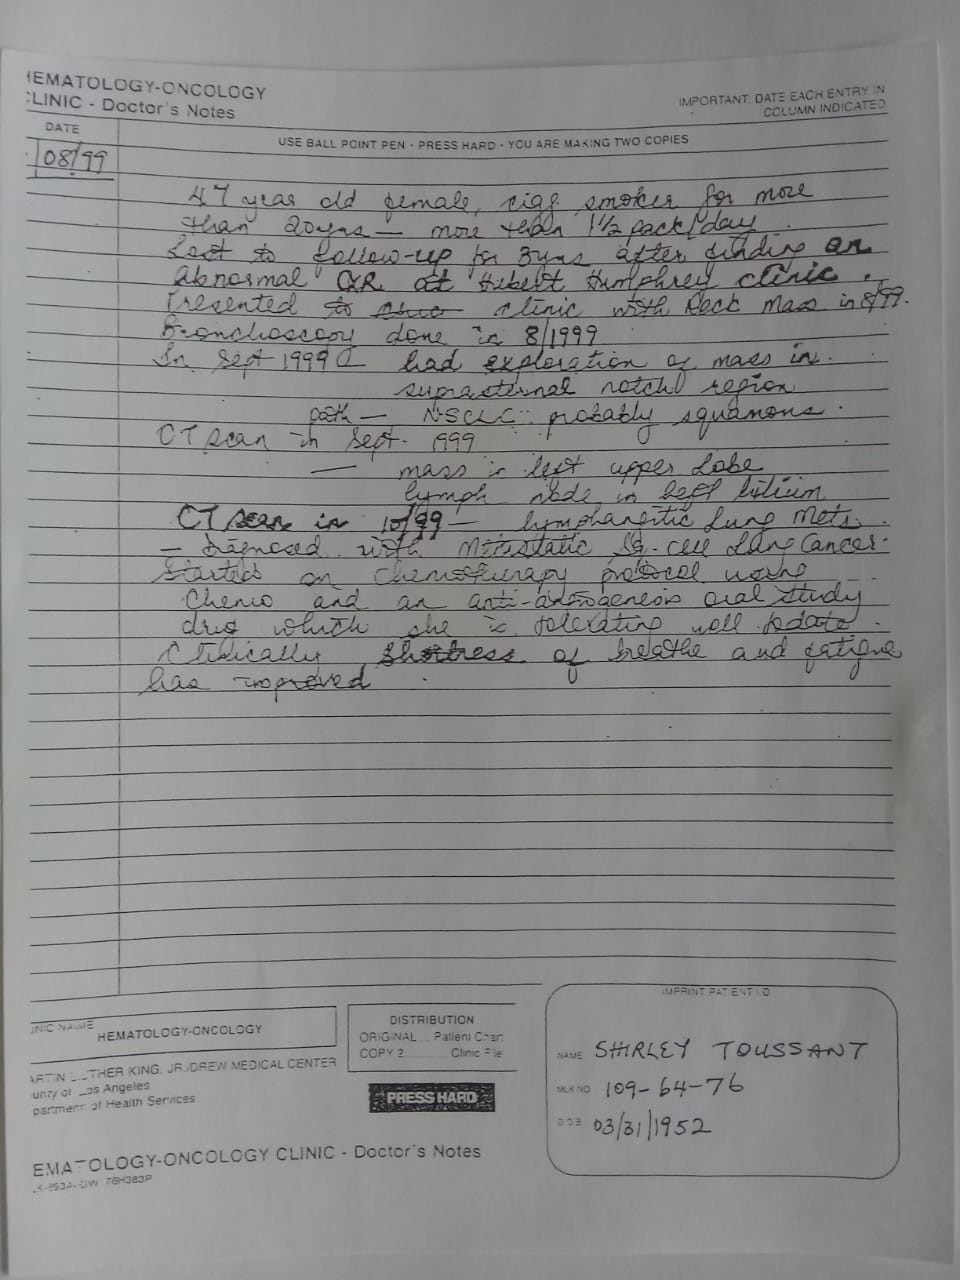 HEMATOLOGY-ONCOLOGY
CLINIC - Doctor's Notes
IMPORTANT: DATE EACH ENTRY IN
COLUMN INDICATED
DATE
USE BALL POINT PEN - PRESS HARD - YOU ARE MAKING TWO COPIES
08/99
47 year old female, cigs smoker for more
than 20yrs — more than 1½ pack/day
Lost to follow-up for 3yrs after finding an
Abnormal CXR at Hubert Humphrey clinic.
Presented to clinic with Neck Mass in 8/99.
Bronchoscopy done in 8/1999
In Sept 1999 had exploration of mass in
suprasternal notch region
path — NSCLC: probably squamous.
CT scan in Sept. 1999
— mass in left upper Lobe
lymph node in left hilium
CT scan in 10/99 — lymphangitic Lung Mets.
— diagnosed with Metastatic Sq. cell Lung Cancer.
Started on Chemotherapy protocol using
Chemo and an anti-angiogenesis oral study
drug which she is tolerating well todate.
Clinically Shortness of breathe and fatigue
has improved.
CLINIC NAME
HEMATOLOGY-ONCOLOGY
DISTRIBUTION
ORIGINAL ... Patient Chart
COPY 2 ... Clinic File
MARTIN LUTHER KING, JR./DREW MEDICAL CENTER
County of Los Angeles
Department of Health Services
PRESS HARD
IMPRINT PATIENT I.D.
NAME SHIRLEY TOUSSANT
MLK NO 109-64-76
DOB 03/31/1952
HEMATOLOGY-ONCOLOGY CLINIC - Doctor's Notes
76H383P